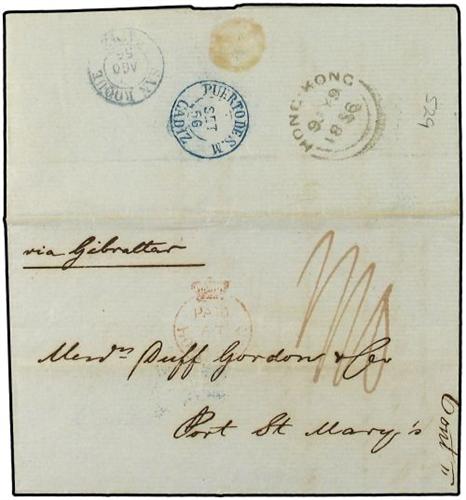 SAN ROQUE
AGO
56
PUERTO DE S. M
SET
56
CADIZ
HONG KONG
529
via Gibraltar
PAID
AT
Messrs Duff Gordon & Co
Port St Mary's